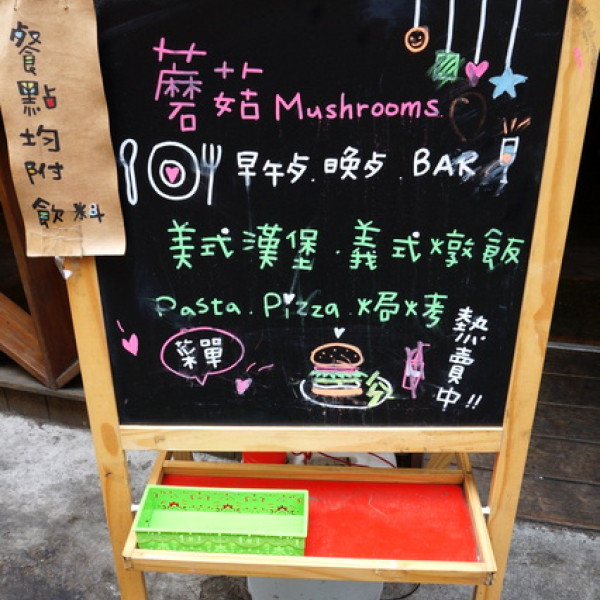 餐點均附飲料
蘑菇 Mushrooms
早午歺.晚歺.BAR
美式漢堡.義式燉飯
Pasta.Pizza.焗烤
熱賣中!!
菜單